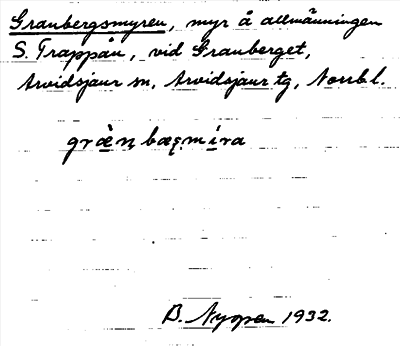 Granbergsmyren, myr å allmänningen
S. Trappån, vid Granberget,
Arvidsjaur sn, Arvidsjaur tg, Norrb. l.
græ̀n bæșmíra
B. Nygren 1932.